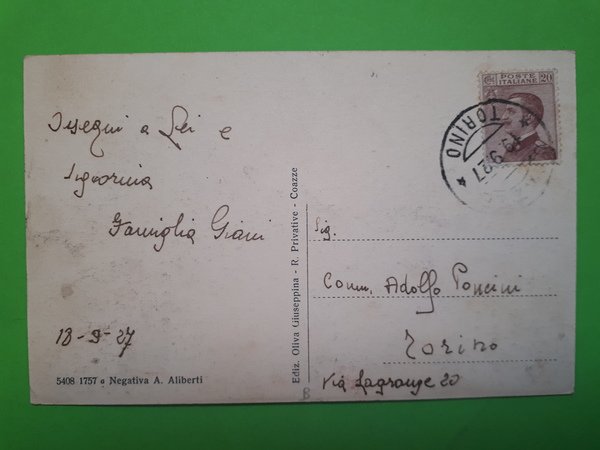 Ossequi a Lei e
Signorina
Famiglia Giani
13-9-27
5408 1757 a Negativa A. Aliberti
Ediz. Oliva Giuseppina - R. Privative - Coazze
POSTE
ITALIANE
20
TORINO
9 27
Sig.
Comm. Adolfo Poncini
Torino
Via Lagrange 20